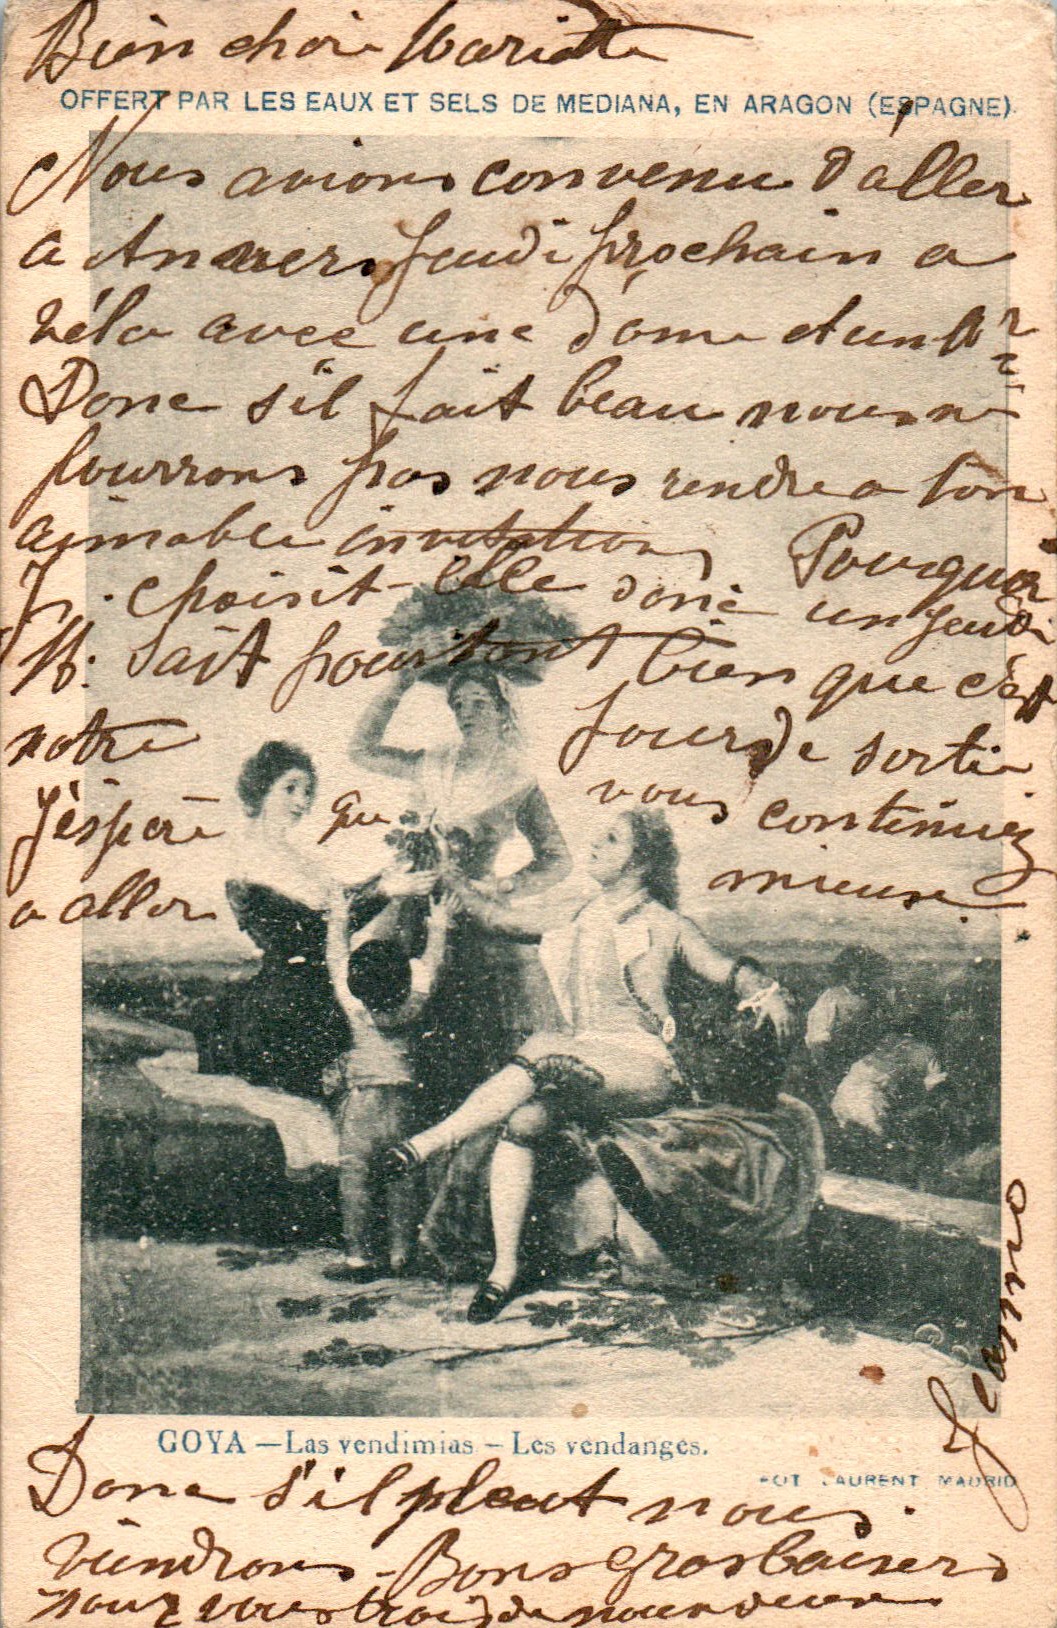 Bien chère Mariette
OFFERT PAR LES EAUX ET SELS DE MEDIANA, EN ARAGON (ESPAGNE)
Nous avions convenu d'aller
a Anvers jeudi prochain a
vélo avec une dame et un Mr
Donc s'il fait beau nous ne
pourrons pas nous rendre a ton
aimable invitation Pourquoi
J. choisit-elle donc un jeudi
M. sait pourtant bien que c'est
notre jour de sortie
J'éspère que vous continuez
a aller mieux.
Jeanne
GOYA — Las vendimias – Les vendanges.
FOT LAURENT MADRID
Donc s'il pleut nous
viendrons - Bons gros baisers
pour vous trois de nous deux